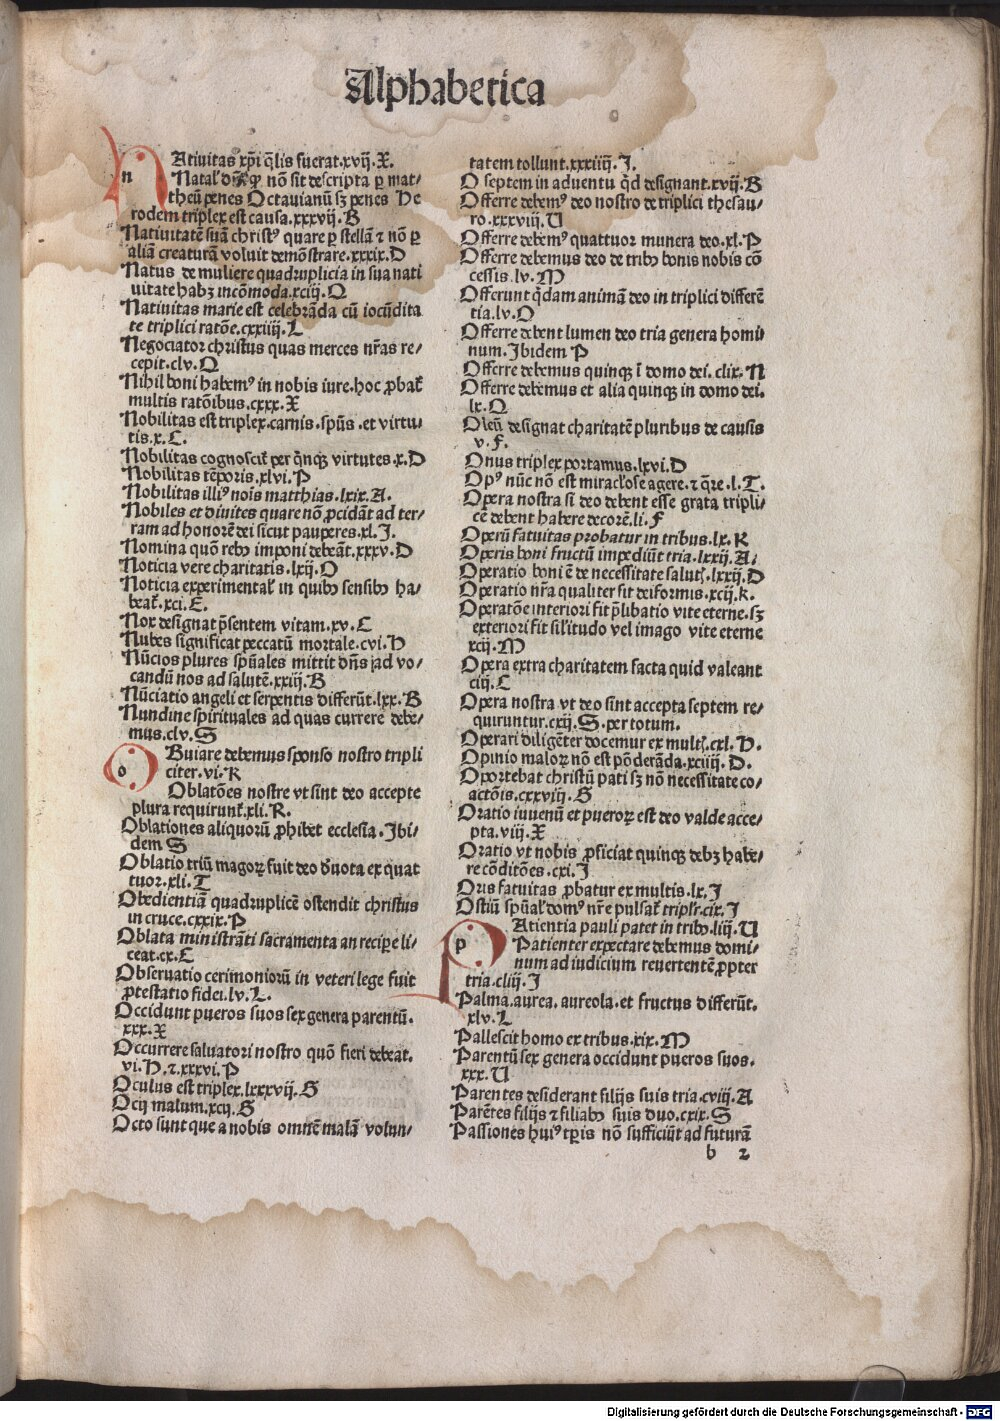 Alphabetica
NAtiuitas xp̄i q̄lis fuerat.xvij.X.
n
Natal' dn̄i nō sit descripta ꝑ mat⸗
theū penes Octauianū sꝫ penes He
rodem triplex est causa.xxxvij.B
Natiuitatē suā christꝰ quare ꝑ stellā ⁊ nō ꝑ
aliā creaturā voluit demōstrare.xxxix.D
Natus de muliere quadruplicia in sua nati
uitate habꝫ incōmoda.xciij.Q
Natiuitas marie est celebrāda cū iocūdita
te triplici ratōe.cxxiiij.L
Negociator christus quas merces nr̄as re⸗
cepit.clv.Q
Nihil boni habemꝰ in nobis iure.hoc ꝓbat̄
multis ratōibus.cxxx.X
Nobilitas est triplex.carnis.spūs.et virtu
tis.x.C.
Nobilitas cognoscit̄ per q̄nqꝫ virtutes.x.D
Nobilitas tēporis.xlvi.P
Nobilitas illiꝰ nois matthias.lxix.A.
Nobiles et diuites quare nō ꝓcidāt ad ter⸗
ram ad honorē dei sicut pauperes.xl.J.
Nomina quō rebꝰ imponi debeāt.xxxv.D
Noticia vere charitatis.lxij.O
Noticia experimental' in quibꝰ sensibꝰ ha⸗
beat̄.xci.E.
Nox designat p̄sentem vitam.xv.C
Nubes significat peccatū mortale.cvi.H
Nūcios plures spūales mittit dn̄s ad vo⸗
candū nos ad salutē.xxiij.B
Nūciatio angeli et serpentis differūt.lxx.B
Nundine spirituales ad quas currere debe⸗
mus.clv.S
OBuiare debemus sponso nostro tripli
o
citer.vi.K
Oblatōes nostre vt sint deo accepte
plura requirunt̄.xli.R.
Oblationes aliquorū ꝓhibet ecclesia.Ibi⸗
dem S
Oblatio triū magoꝝ fuit deo deuota ex quat
tuor.xli.T
Obedientiā quadruplicē ostendit christus
in cruce.cxxix.P
Oblata ministrāti sacramenta an recipe li⸗
ceat.cx.C
Obseruatio cerimoniorū in veteri lege fuit
ꝓtestatio fidei.lv.L.
Occidunt pueros suos sex genera parentū.
xxx.X
Occurrere saluatori nostro quō fieri debeat.
vi.H.⁊.xxxvi.P
Oculus est triplex.lxxxvij.G
Ocij malum.xcij.G
Octo sunt que a nobis omnē malā volun⸗
tatem tollunt.xxxiiij.J.
O septem in aduentu qd̄ designant.xvij.B
Offerre debemꝰ deo nostro de triplici thesau⸗
ro.xxxviij.U
Offerre debemꝰ quattuor munera deo.xl.P
Offerre debemus deo de tribꝰ bonis nobis cō
cessis.lv.M
Offerunt q̄dam animā deo in triplici differē
tia.lv.O
Offerre debent lumen deo tria genera homi
num.Ibidem P
Offerre debemus quinqꝫ ī domo dei.clix.N
Offerre debemus et alia quinqꝫ in domo dei.
lx.Q
Oleū designat charitatē pluribus de causis
v.F.
Onus triplex portamus.lxvi.D
Opꝰ nūc nō est miracl'ose agere.⁊ q̄re.l.T.
Opera nostra si deo debent esse grata tripli⸗
cē debent habere decorē.li.F
Operū fatuitas probatur in tribus.lx.K
Operis boni fructū impediūt tria.lxxij.A.
Operatio boni ē de necessitate salut̄.lxxij.D
Operatio nr̄a qualiter sit deiformis.xcij.k.
Operatōe interiori fit p̄libatio vite eterne.sꝫ
exteriori fit sil'itudo vel imago vite eterne
xcij.M
Opera extra charitatem facta quid valeant
ciij.C
Opera nostra vt deo sint accepta septem re⸗
quiruntur.cxij.S.per totum.
Operari diligēter docemur ex mult̄.cxl.H.
Opinio maloꝝ nō est pōderāda.xciiij.D.
Oportebat christū pati sꝫ nō necessitate co⸗
actōis.cxxviij.G
Oratio iuuenū et pueroꝝ est deo valde acce⸗
pta.viij.X
Oratio vt nobis ꝓficiat quinqꝫ debꝫ habe⸗
re cōditōes.cxi.J
Oris fatuitas ꝓbatur ex multis.lx.J
Ostiū spūal' domꝰ nr̄e pulsat̄ triplr̄.cix.J
PAtientia pauli patet in tribꝰ.liij.U
p
Patienter expectare debemus domi⸗
num ad iudicium reuertentē ꝓpter
tria.cliij.J
Palma.aurea.aureola.et fructus differūt.
xlv.L
Pallescit homo ex tribus.xix.M
Parentū sex genera occidunt pueros suos.
xxx.U
Parentes desiderant filijs suis tria.cviij.A
Parētes filijs ⁊ filiabꝰ suis duo.cxix.S
Passiones huiꝰ tꝑis nō sufficiūt ad futurā
b 2
Digitalisierung gefördert durch die Deutsche Forschungsgemeinschaft - DFG